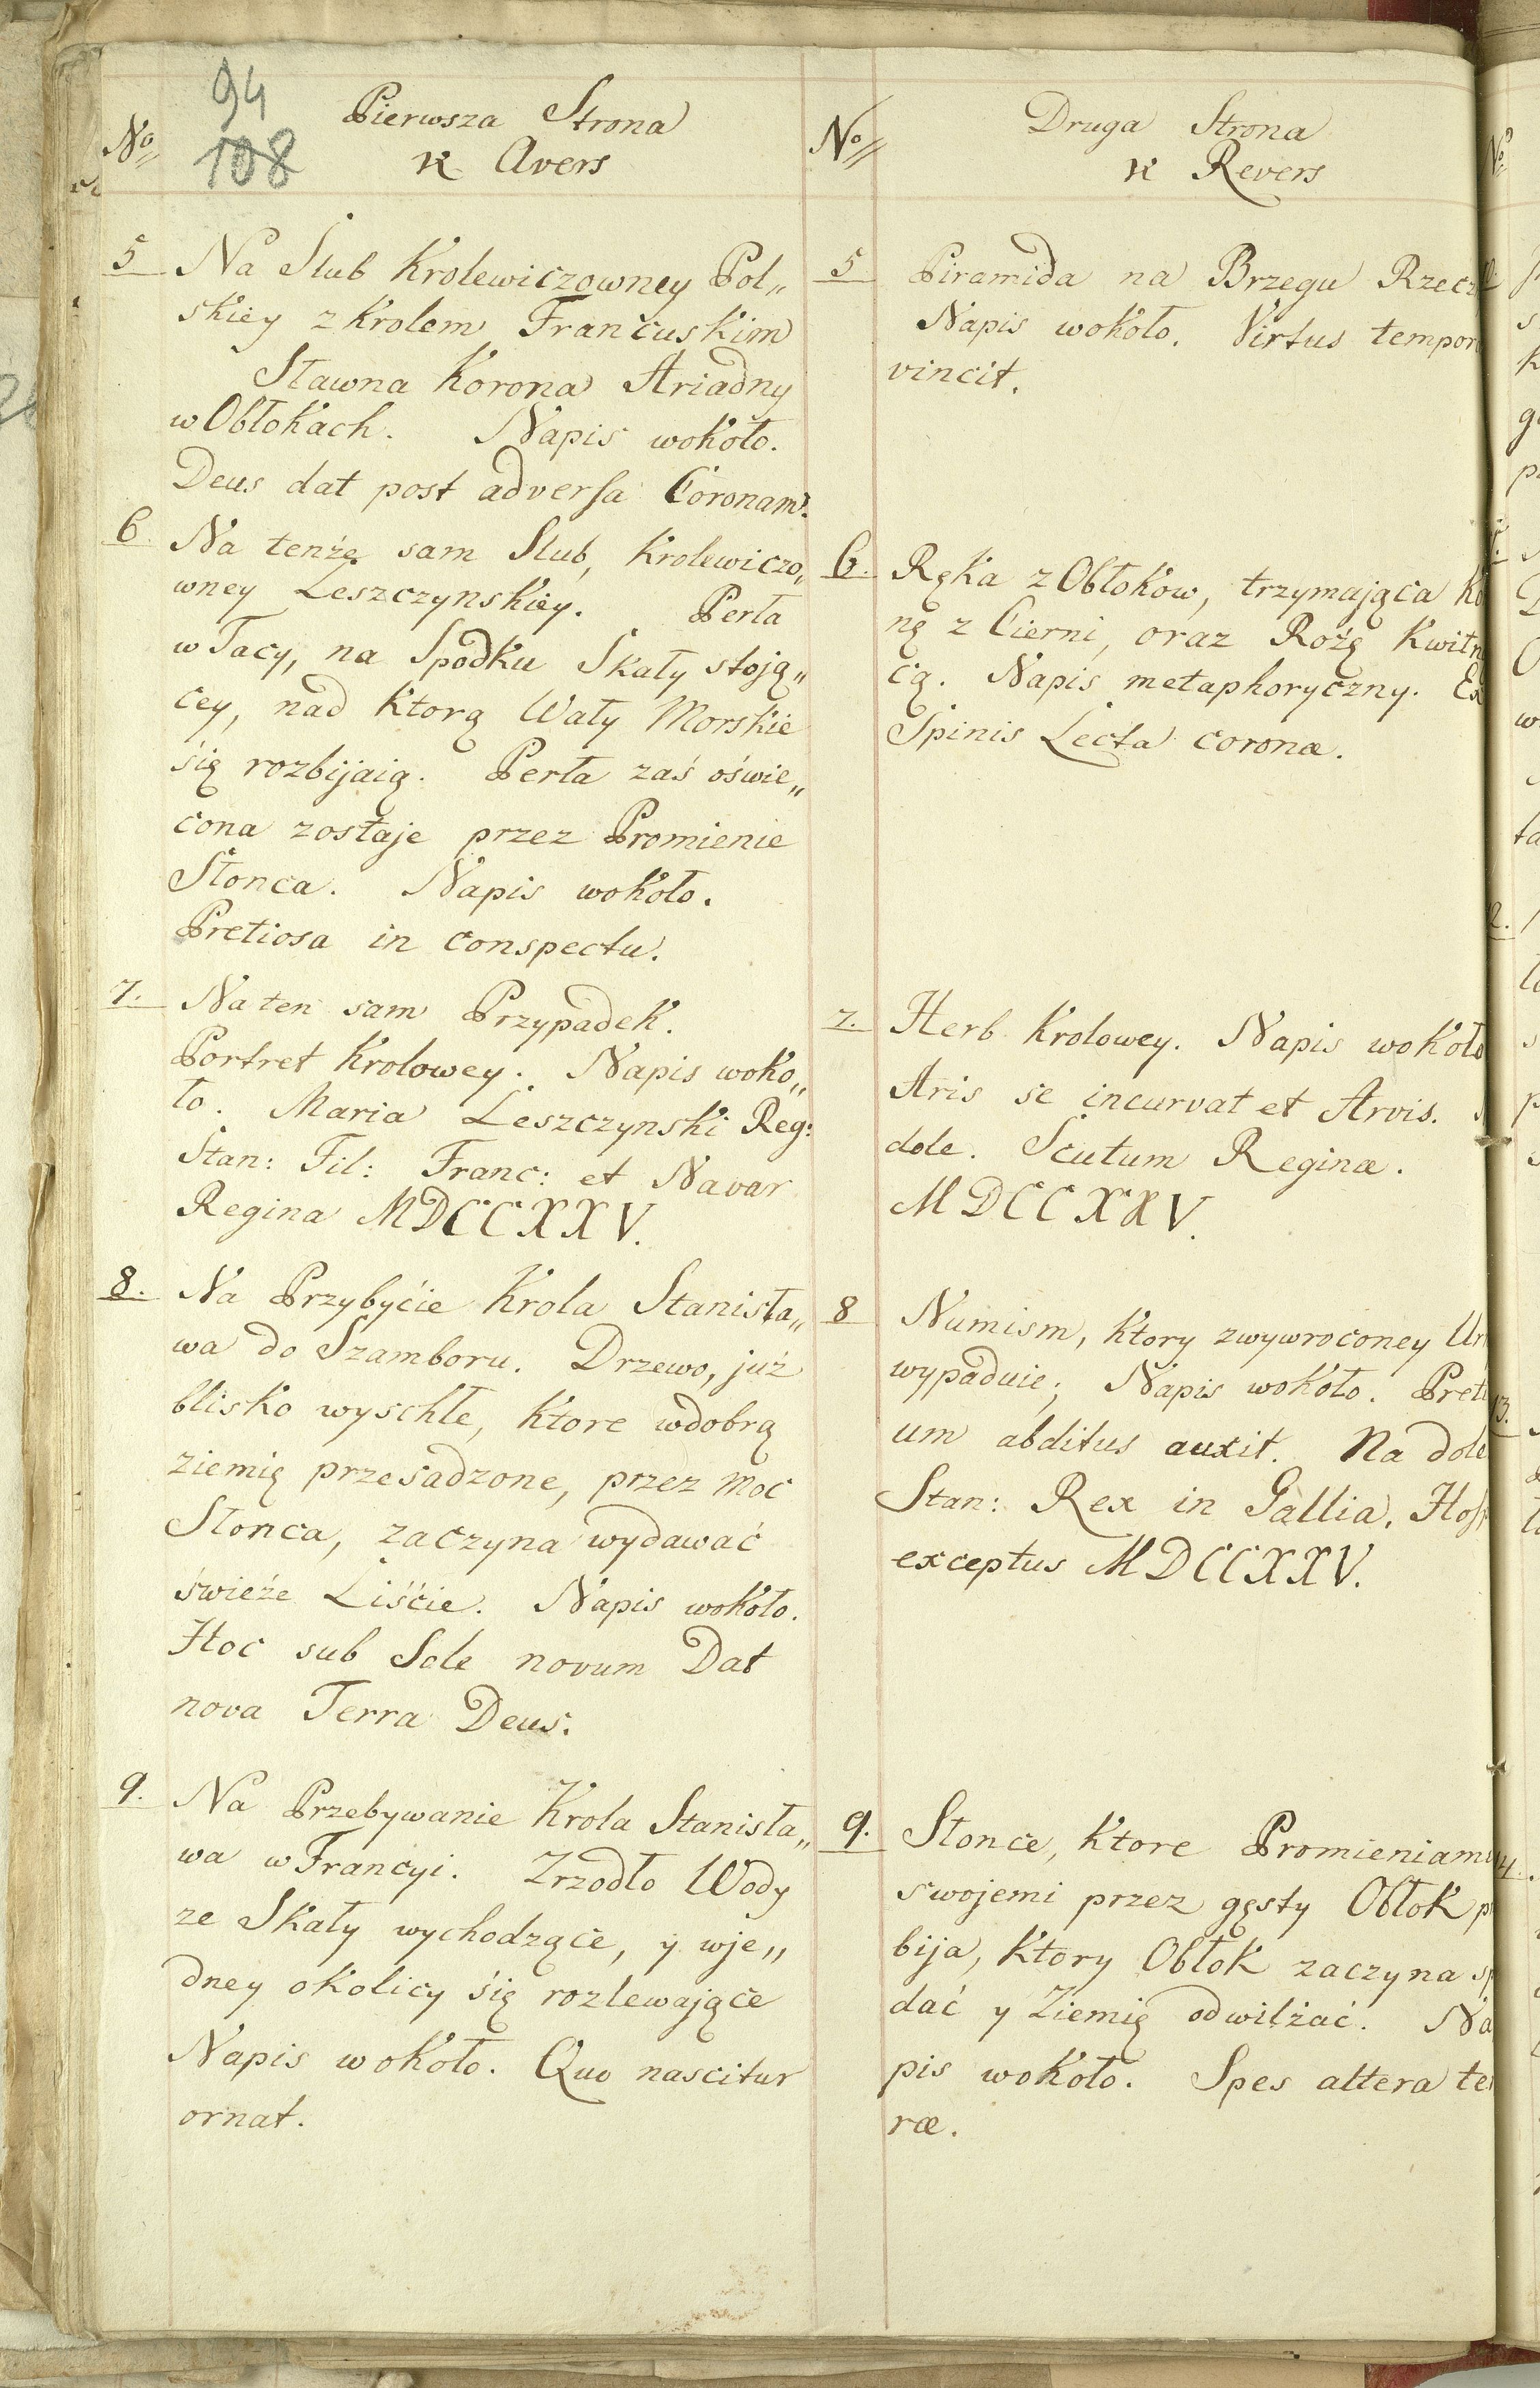 94
108
No
Pierwsza Strona
Avers
5 Na Slub Krolewiczowney Pol„
skiey z Krolem Francuskim
Sławna Korona Ariadny
w Obłokach. Napis wokoło.
Deus dat post adversa Coronam.
6. Na tenże sam Slub, Krolewiczo„
wney Leszczynskiey. Perła
w Tacy, na Spodku Skały stoją„
cey, nad Ktorą Wały Morskie
się rozbijaią. Perła zaś oświe„
cona zostaje przez Promienie
Słonca. Napis wokoło.
Pretiosa in conspectu.
7. Na ten sam Przypadek.
Portret Krolowey. Napis woko„
ło. Maria Leszczynski Reg:
Stan: Fil: Franc: et Navar
Regina MDCCXXV.
8. Na Przybyćie Krola Stanisła„
wa do Szamboru. Drzewo, już
blisko wyschłe, Ktore w dobrą
ziemię przesadzone, przez moc
Słonca, zaczyna wydawać
świeże Liśćie. Napis wokoło.
Hoc sub Sole novum Dat
nova Terra Deus.
9. Na Przebywanie Krola Stanisła„
wa w Francyi. Zrzodło Wody
ze Skały wychodzące, y w je„
dney okolicy się rozlewające
Napis wokoło. Quo nascitur
ornat.
No
Druga Strona
Revers
5 Piramida na Brzegu
Napis wokoło. Virtus
vincit.
6. Ręka z Obłokow, trzymająca
nę z Cierni, oraz Rożę
cą. Napis metaphoryczny.
Spinis Lecta coronæ.
7. Herb Krolowey. Napis wokoło
Aris se incurvat et Arvis.
dole. Scutum Reginæ.
MDCCXXV.
8 Numism, Ktory z wywroconey
wypaduie; Napis wokoło.
um abditus auxit. Na dole
Stan: Rex in Gallia,
exceptus MDCCXXV.
9. Słonce, Ktore Promieniami
swojemi przez gęsty Obłok
bija, Ktory Obłok zaczyna
dać y Ziemię odwilżać. Na
pis wokoło. Spes altera
ræ.